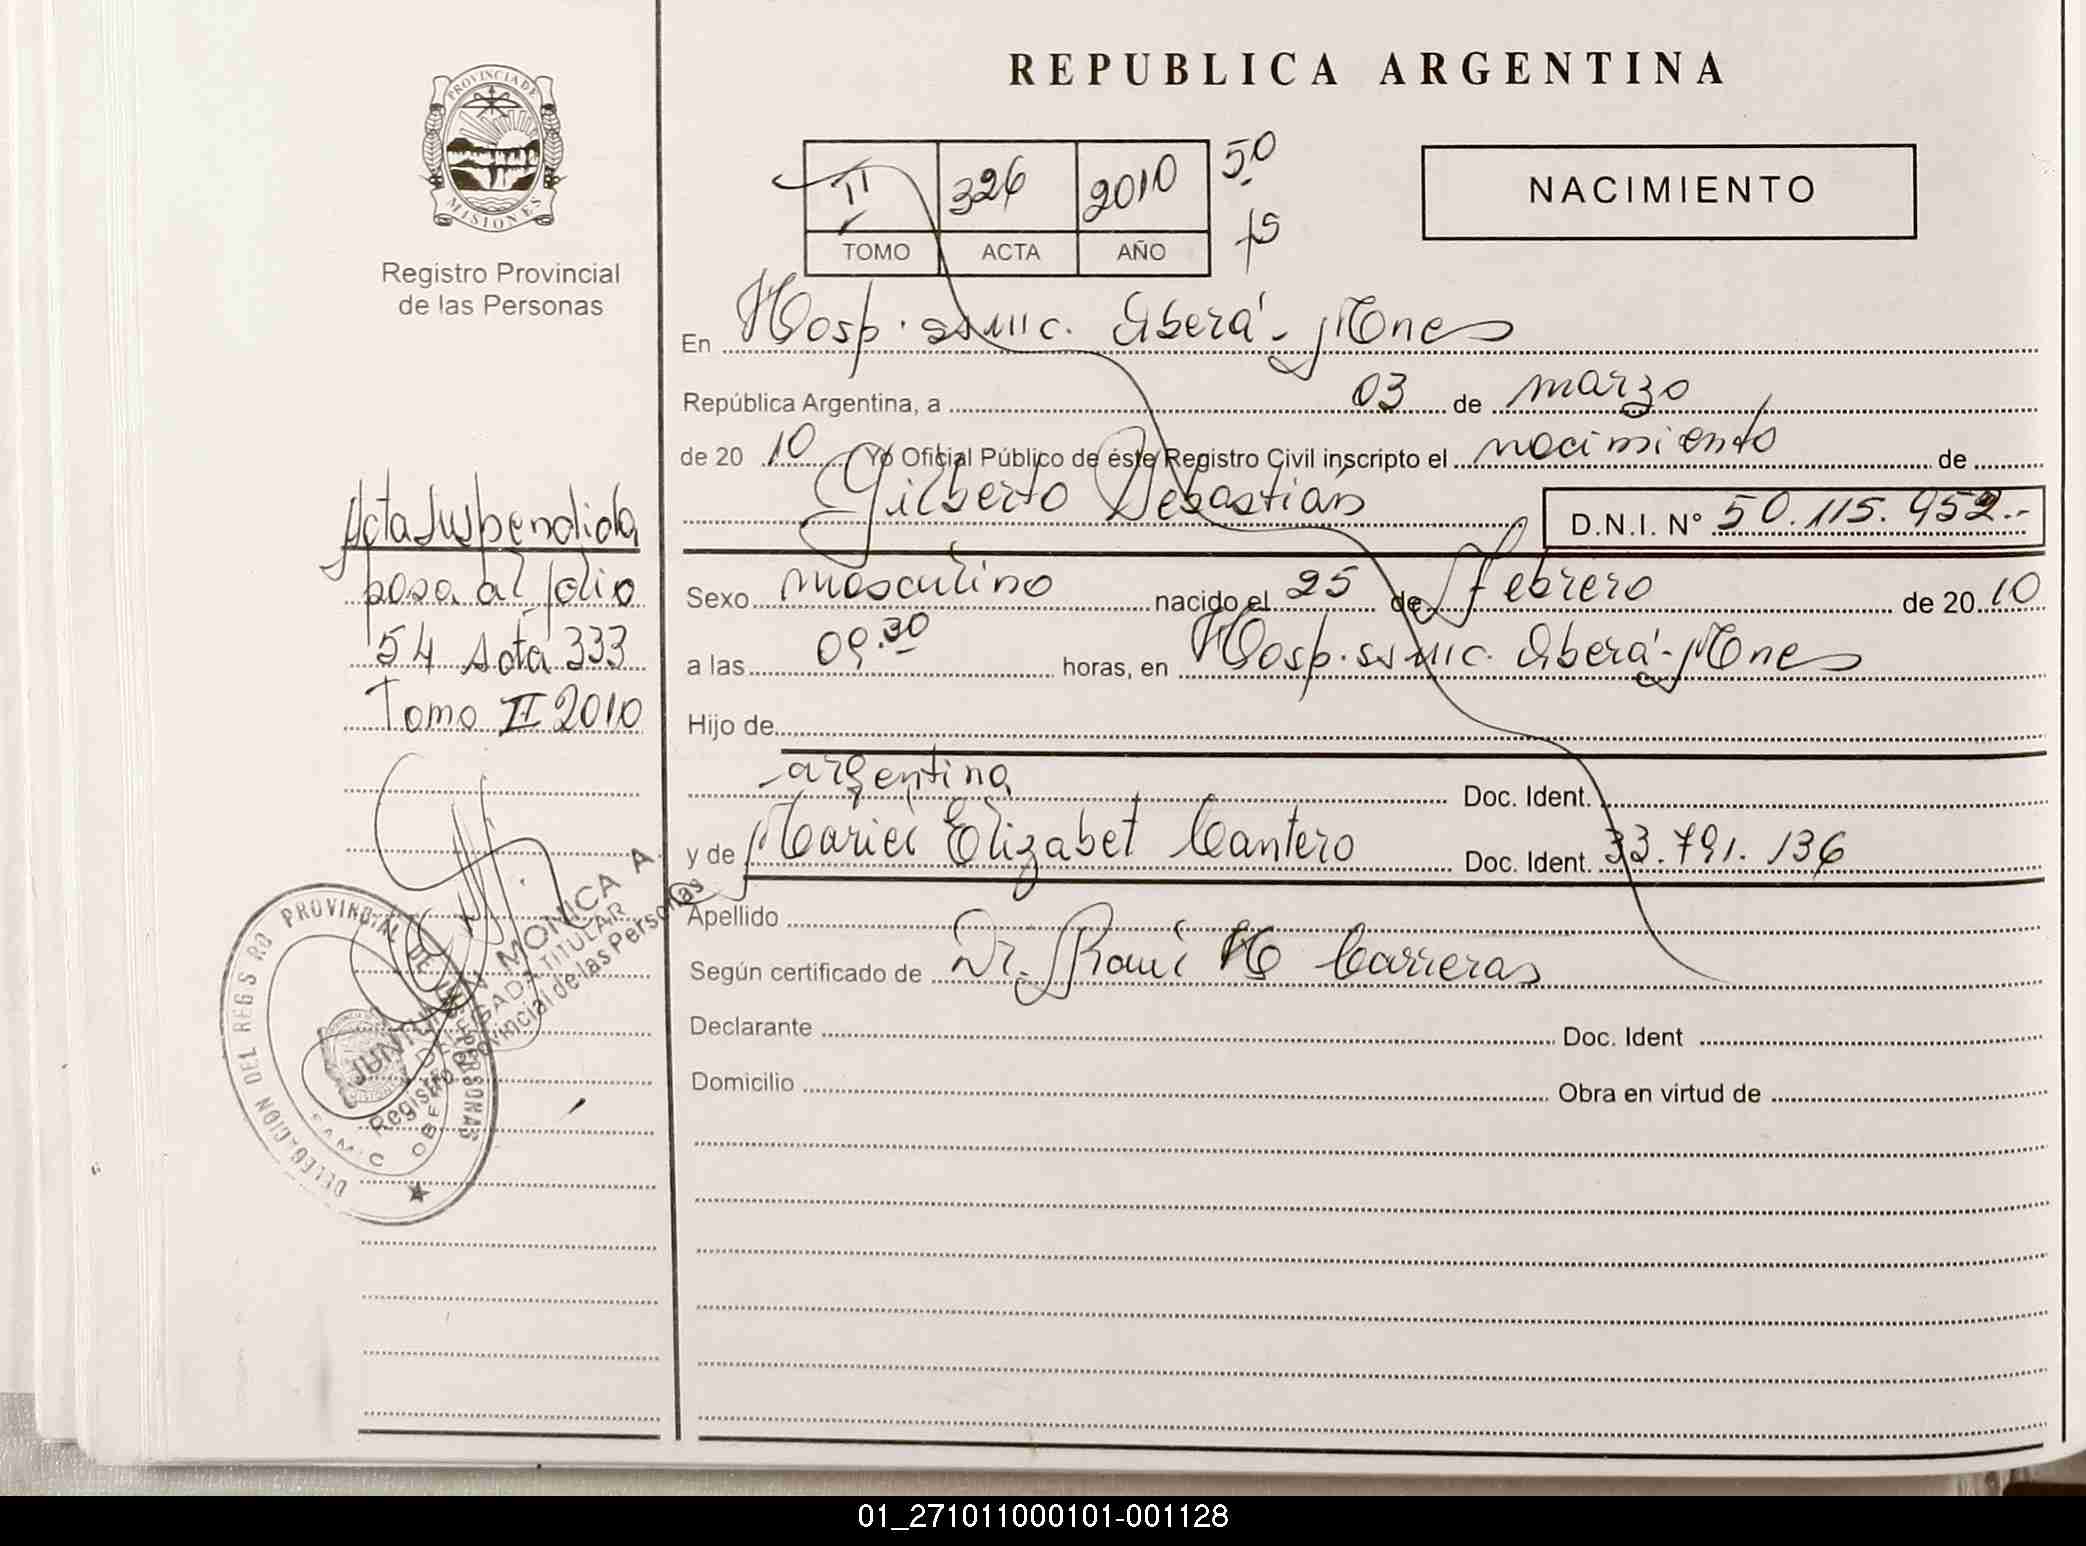 REPUBLICA ARGENTINA
PROVINCIA DE
MISIONES
Registro Provincial
de las Personas
II 326 2010 50
TOMO ACTA AÑO fs
NACIMIENTO
En Hosp. ssmic. Oberá - Mnes
República Argentina, a 03 de marzo
de 20 10 Yo Oficial Público de éste Registro Civil inscripto el nacimiento de
Gilberto Sebastián D.N.I. N° 50.115.952.-
Sexo masculino nacido el 25 de febrero de 20 10
a las 09.30 horas, en Hosp. ssmic. Oberá - Mnes
Hijo de
argentina Doc. Ident.
y de Mariei Elizabet Cantero Doc. Ident. 33.791.136
Apellido
Según certificado de Dr. Raui H Carreras
Declarante Doc. Ident
Domicilio Obra en virtud de
Acta Suspendida
pasa al folio
54 Acta 333
Tomo II 2010
MONICA A.
DELEGADA TITULAR
Registro Provincial de las Personas
DELEGACION DEL REGISTRO PROVINCIAL DE LAS PERSONAS
SAMIC OBERA
01_271011000101-001128